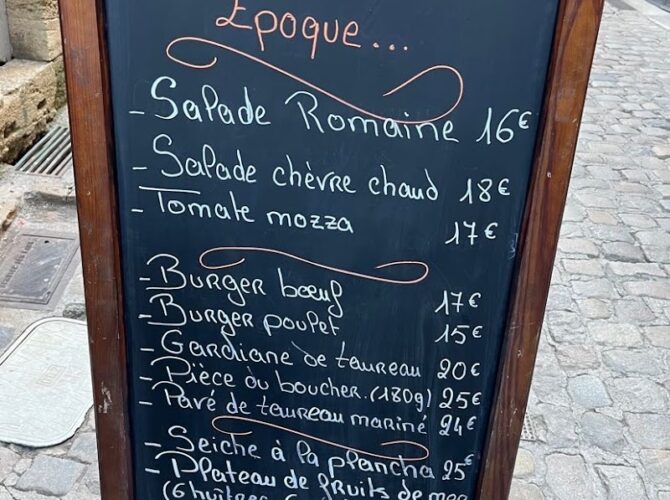 Epoque...
- Salade Romaine 16€
- Salade chèvre chaud 18€
- Tomate mozza 17€
- Burger bœuf 17€
- Burger poulet 15€
- Gardiane de taureau 20€
- Pièce du boucher. (180g) 25€
- Pavé de taureau mariné 24€
- Seiche à la plancha 25€
- Plateau de fruits de mer
(6 huîtres